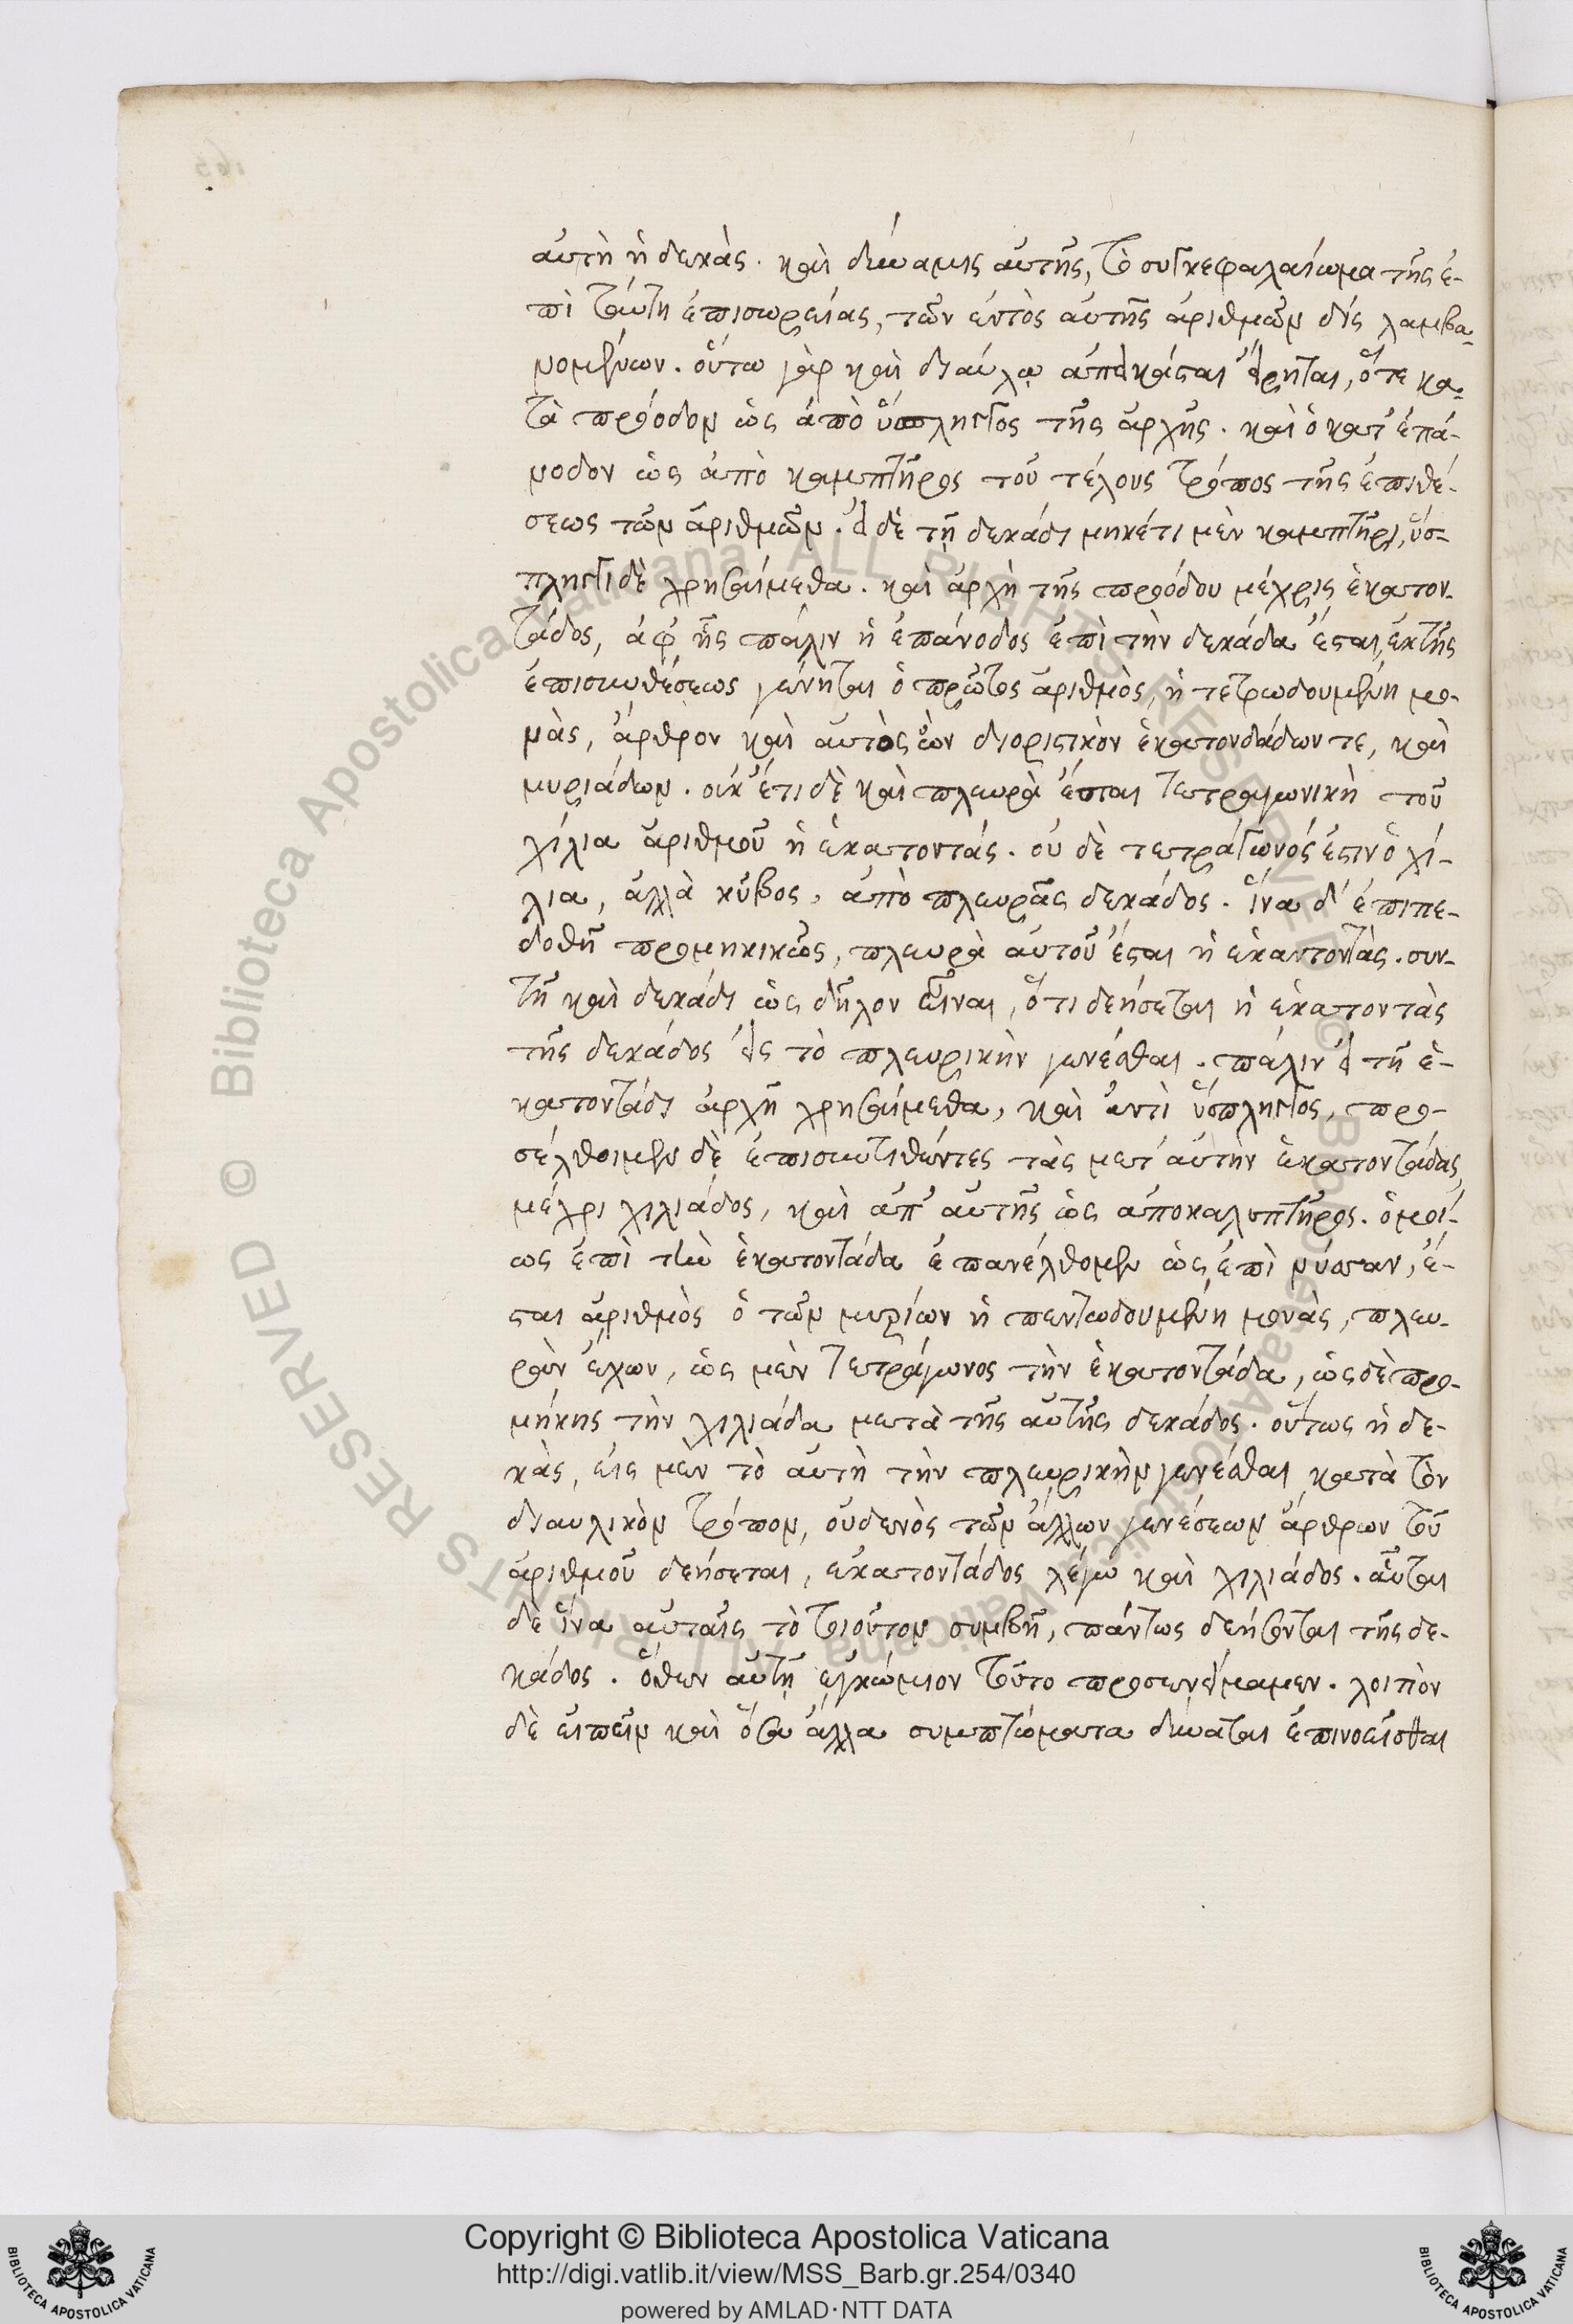 αὐτὴ ἡ δεκὰς. καὶ δύναμις αὐτῆς, τὸ συγκεφαλαίωμα τῆς ἐ-
πὶ ταύτη ἐπισωρείας, τῶν ἐντὸς αὐτῆς ἀριθμῶν δὶς λαμβα-
νομένων. οὕτω γὰρ καὶ διαύλῳ ἀπεικάσαι εἴρηται, ὅτε κα-
τὰ πρόοδον ὡς ἀπὸ ὕσπληγγος τῆς ἀρχῆς. καὶ ὁ κατ' ἐπά-
νοδον ὡς ἀπὸ καμπτῆρος τοῦ τέλους τρόπος τῆς ἐπιθέ-
σεως τῶν ἀριθμῶν. εἰ δὲ τῇ δεκάδι μηκέτι μὲν καμπτῆρι, ὕσ-
πληγγι δὲ χρησαίμεθα. καὶ ἀρχὴ τῆς προόδου μέχρις ἑκατον-
τάδος, ἀφ' ἧς πάλιν ἡ ἐπάνοδος ἐπὶ τὴν δεκάδα ἔσται, ἐκ τῆς
ἐπισυνθέσεως γένηται ὁ πρῶτος ἀριθμὸς, ἡ τετρωδουμένη μο-
νὰς, ἄρθρον καὶ αὐτὸς ἐὼν διοριστικὸν ἑκατονδάδων τε, καὶ
μυριάδων. οὐκ' ἔτι δὲ καὶ πλευρὰ ἔσται τετραγωνικὴ τοῦ
χίλια ἀριθμοῦ ἡ ἑκατοντάς. οὐ δὲ τετράγωνός ἐστιν ὁ χί-
λια, ἀλλὰ κύβος, ἀπὸ πλευρᾶς δεκάδος. ἵνα δ' ἐπιπε-
δοθῇ προμηκικῶς, πλευρὰ αὐτοῦ ἔσται ἡ ἑκαντοντὰς. συν-
τῇ καὶ δεκάδι ὡς δῆλον εἶναι, ὅτι δεήσεται ἡ ἑκατοντὰς
τῆς δεκάδος εἰς τὸ πλευρικὴν γενέσθαι. πάλιν εἰ τῇ ἑ-
κατοντάδι ἀρχῇ χρησαίμεθα, καὶ ἀντὶ ὕσπληγγος, προ-
σέλθοιμεν δὲ ἐπισυντιθέντες τὰς μετ' αὐτὴν ἑκατοντάδας,
μέχρι χιλιάδος, καὶ ἀπ' αὐτῆς ὡς ἀποκαλυπτῆρος. ὁμοί-
ως ἐπὶ τὴν ἑκατοντάδα ἐπανέλθοιμεν ὡς ἐπὶ νύσσαν, ἔ-
σται ἀριθμὸς ὁ τῶν μυρίων ἡ πεντωδουμένη μονὰς, πλευ-
ρὰν ἔχων, ὡς μὲν τετράγωνος τὴν ἑκατοντάδα, ὡς δὲ προ-
μήκης τὴν χιλιάδα μετὰ τῆς αὐτῆς δεκάδος. οὕτως ἡ δε-
κὰς, εἰς μὲν τὸ αὐτὴ τὴν πλευρικὴν γενέσθαι κατὰ τὸν
διαυλικὸν τρόπον, οὐδενὸς τῶν ἄλλων γενέσεων ἄρθρων τοῦ
ἀριθμοῦ δεήσεται, ἑκατοντάδος λέγω καὶ χιλιάδος. αὗται
δὲ ἵνα αὐταῖς τὸ τοιοῦτον συμβῇ, πάντως δεήσονται τῆς δε-
κάδος. ὅθεν αὐτῇ ἐγκώμιον τοῦτο προσενείμαμεν. λοιπὸν
δὲ εἰπεῖν καὶ ὅσα ἄλλα συμπτώματα δύναται ἐπινοεῖσθαι
Copyright © Biblioteca Apostolica Vaticana
http://digi.vatlib.it/view/MSS_Barb.gr.254/0340
powered by AMLAD·NTT DATA